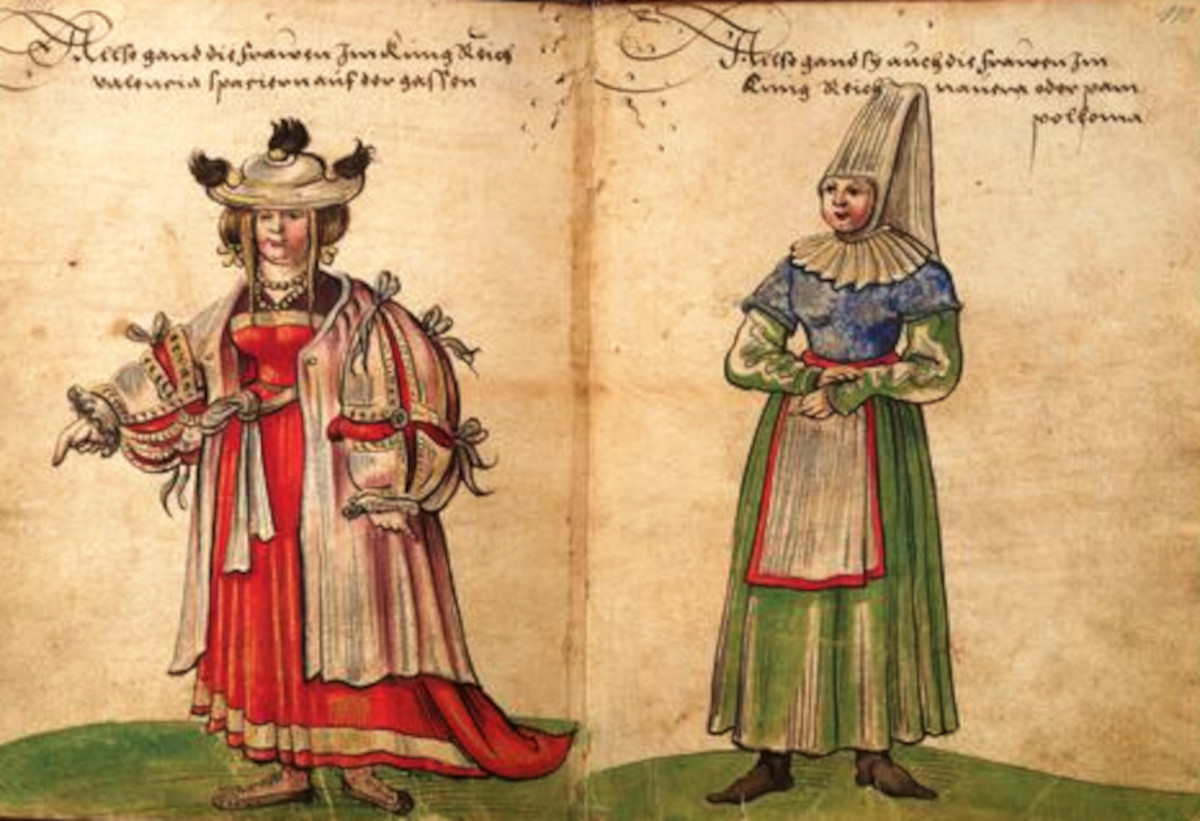 Allso gand die frawen Im Kung Reich
valencia spaciern auf der gassen
Allso gand sy auch die frawen Im
Kung Reich navera oder pam
polloma